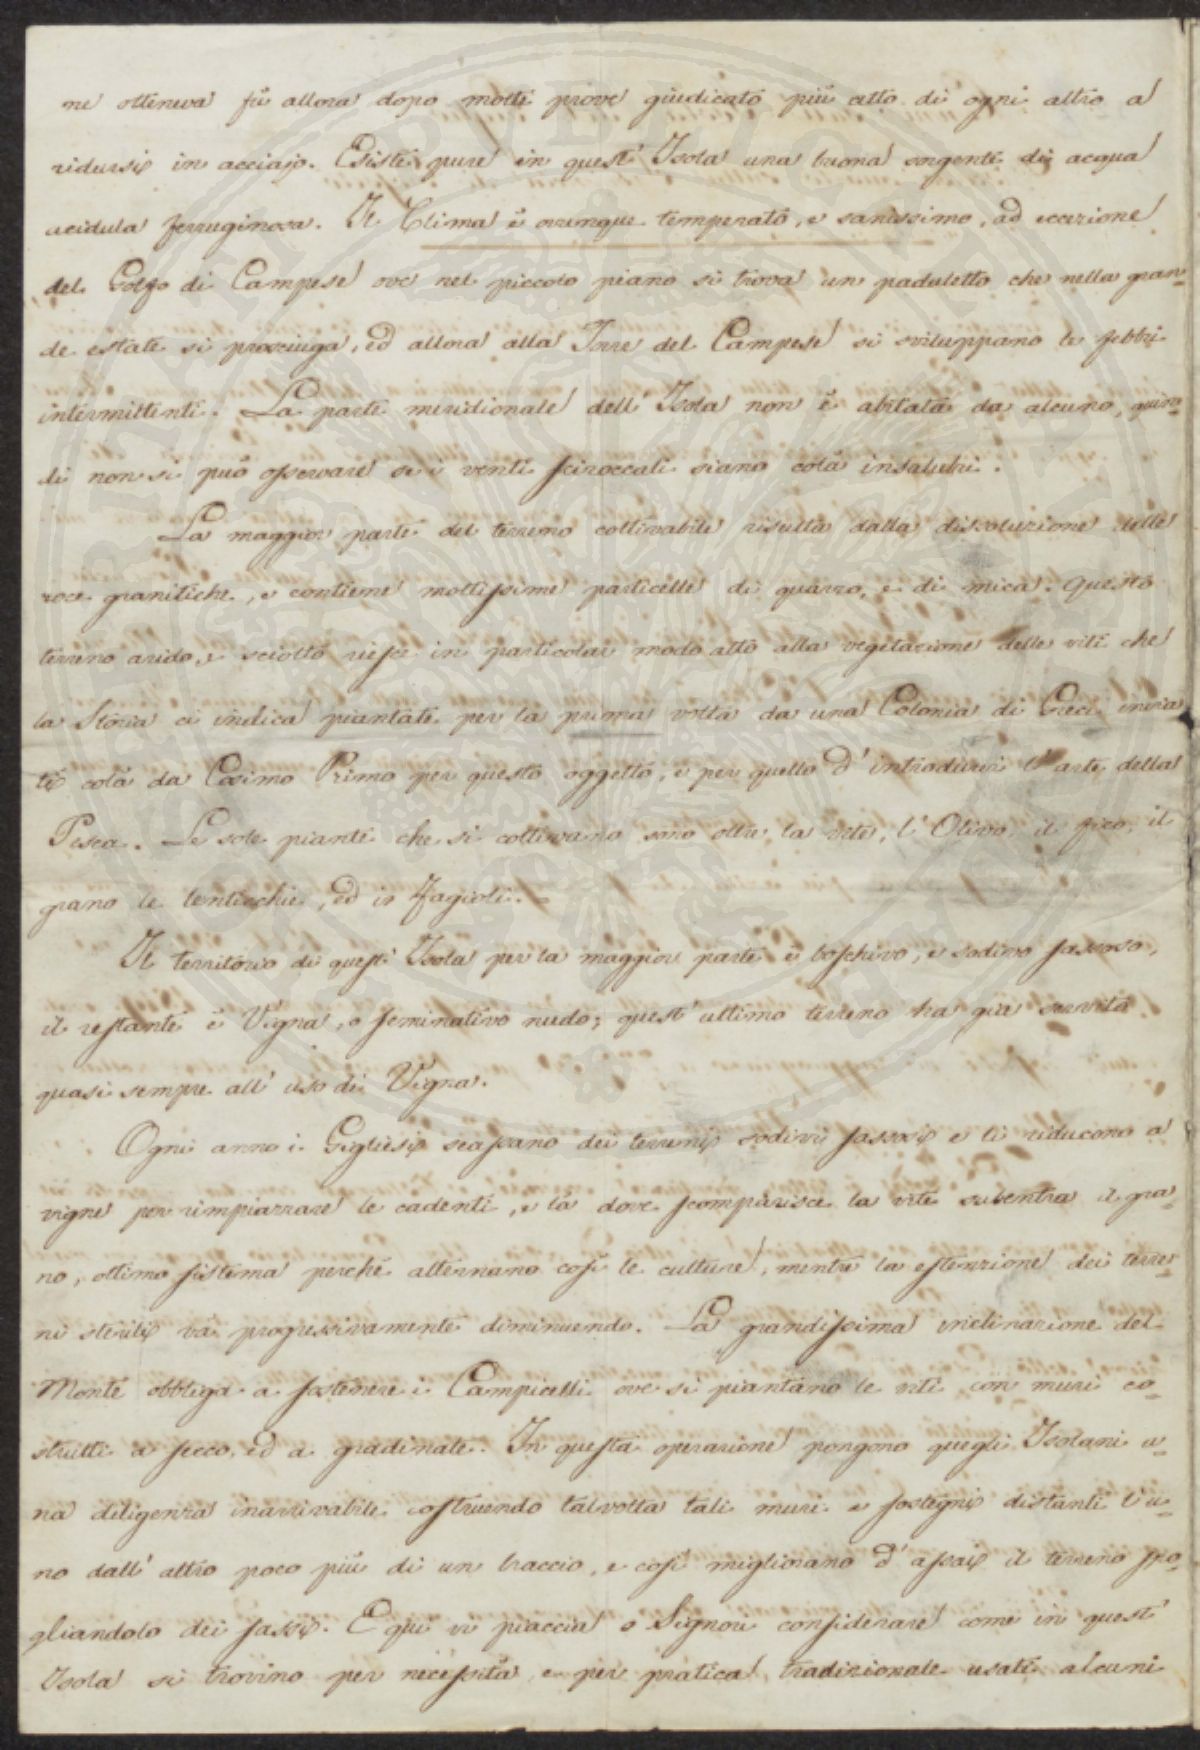 ne otteneva fù allora dopo molte prove giudicato più atto di ogni altro a
ridursi in acciajo. Esiste pure in quest' Isola una buona sorgente di acqua
acidula ferruginosa. Il Clima è ovunque temperato, e sanissimo, ad eccezione
del Golfo di Campese ove nel piccolo piano si trova un paduletto che nella gran=
de estate si prosciuga, ed allora alla Torre del Campese si sviluppano le febbri
intermittenti. La parte meridionale dell' Isola non è abitata da alcuno, quin=
di non si può osservare se i venti sciroccali siano colà insalubri.
La maggior parte del terreno coltivabile risulta dalla dissoluzione delle
roce granitiche, e contiene moltissime particelle di quarzo, e di mica. Questo
terreno arido, e sciolto riesce in particolar modo atto alla vegetazione delle viti che
la Storia ci indica piantate per la prima volta da una Colonia di Greci invia
ti colà da Cosimo Primo per questo oggetto, e per quello d' introdurvi l' arte della
Pesca. Le sole piante che si coltivano sono oltre la vite, l' Olivo, il fico, il
grano le lenticchie, ed i Fagioli.
Il territorio di quest' Isola per la maggior parte è boschivo, e sodivo sassoso,
il restante è Vigna, o seminativo nudo; quest' ultimo terreno ha già servito
quasi sempre all' uso di Vigna.
Ogni anno i Gigliesi scassano dei terreni sodivi sassosi e li riducono a
vigne per rimpiazzare le cadenti, e là dove scomparisce la vite subentra il gra=
no, ottimo sistema perché alternano così le culture, mentre la estenzione dei terre=
ni sterili và progressivamente diminuendo. La grandissima inclinazione del
Monte obbliga a sostenere i Campicelli ove si piantano le viti con muri co=
strutti a secco, ed a gradinate. In questa operazione pongono quegli Isolani u=
na diligenza inarrivabile costruendo talvolta tali muri e sostegni distanti l' u=
no dall' altro poco più di un braccio, e così migliorano d' assai il terreno spo=
gliandolo dei sassi. E qui vi piaccia o Signori considerare come in quest'
Isola si trovino per necessità, e per pratica tradizionale usati alcuni